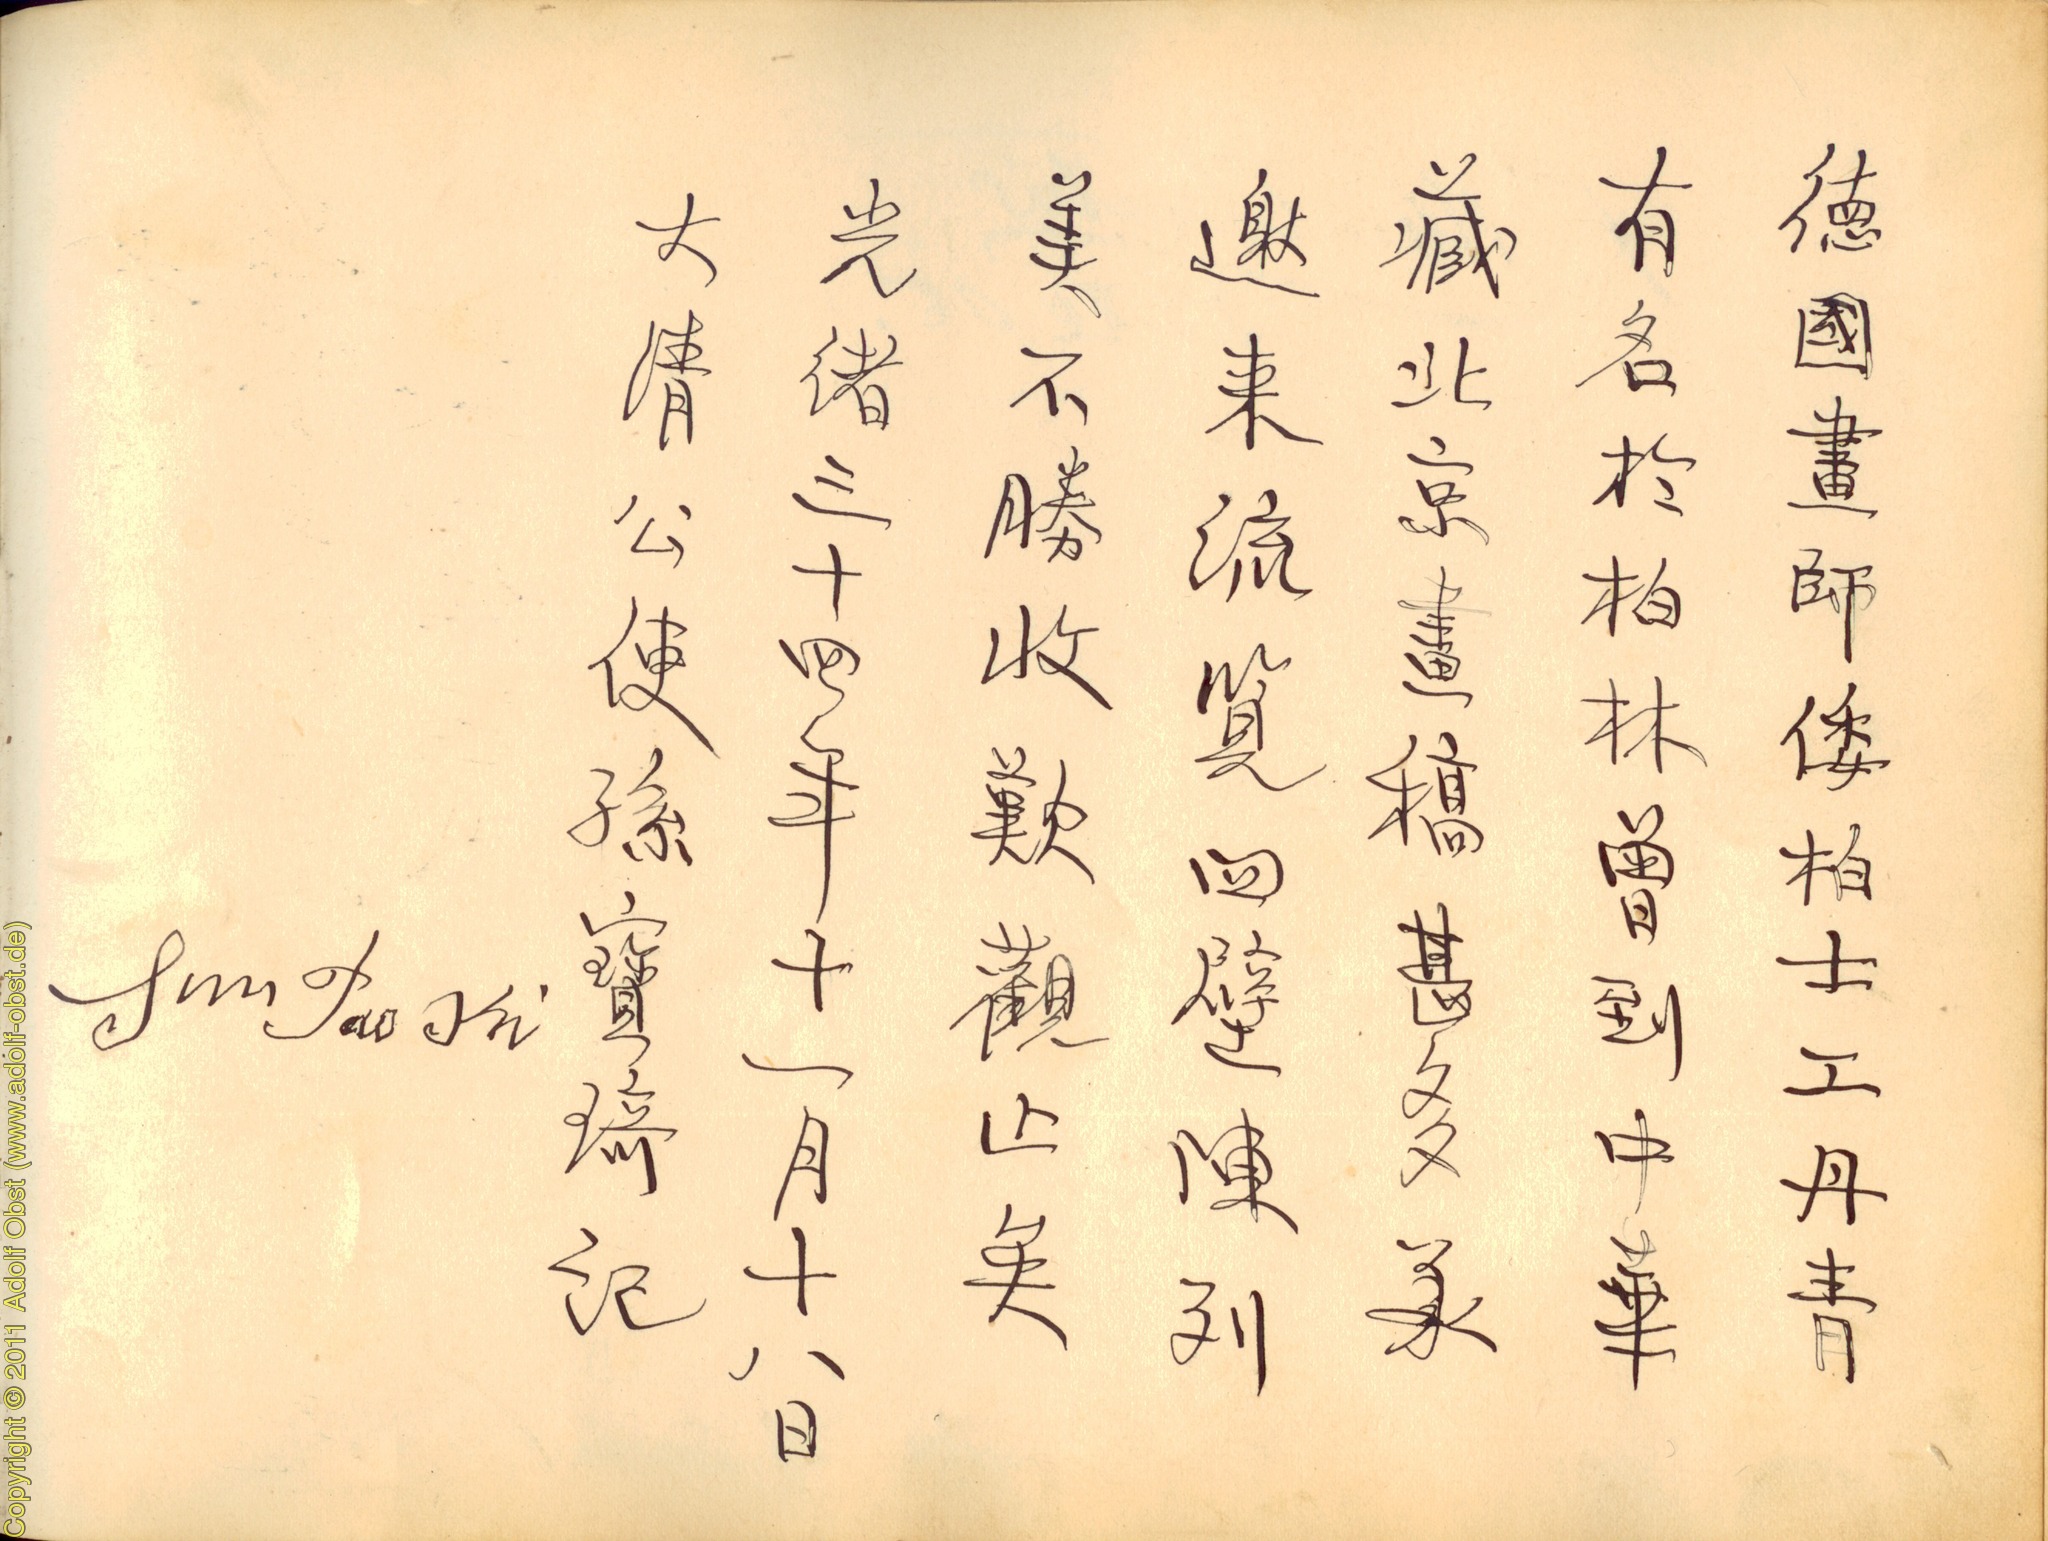 德國畫師倭柏士工丹青
有名於柏林曾到中華
藏北京畫稿甚多承
邀來流覽四壁陳列
美不勝收歎觀止矣
光緒三十四年十一月十八日
大清公使孫寶琦記
Sun Pao Ki
Copyright © 2011 Adolf Obst (www.adolf-obst.de)